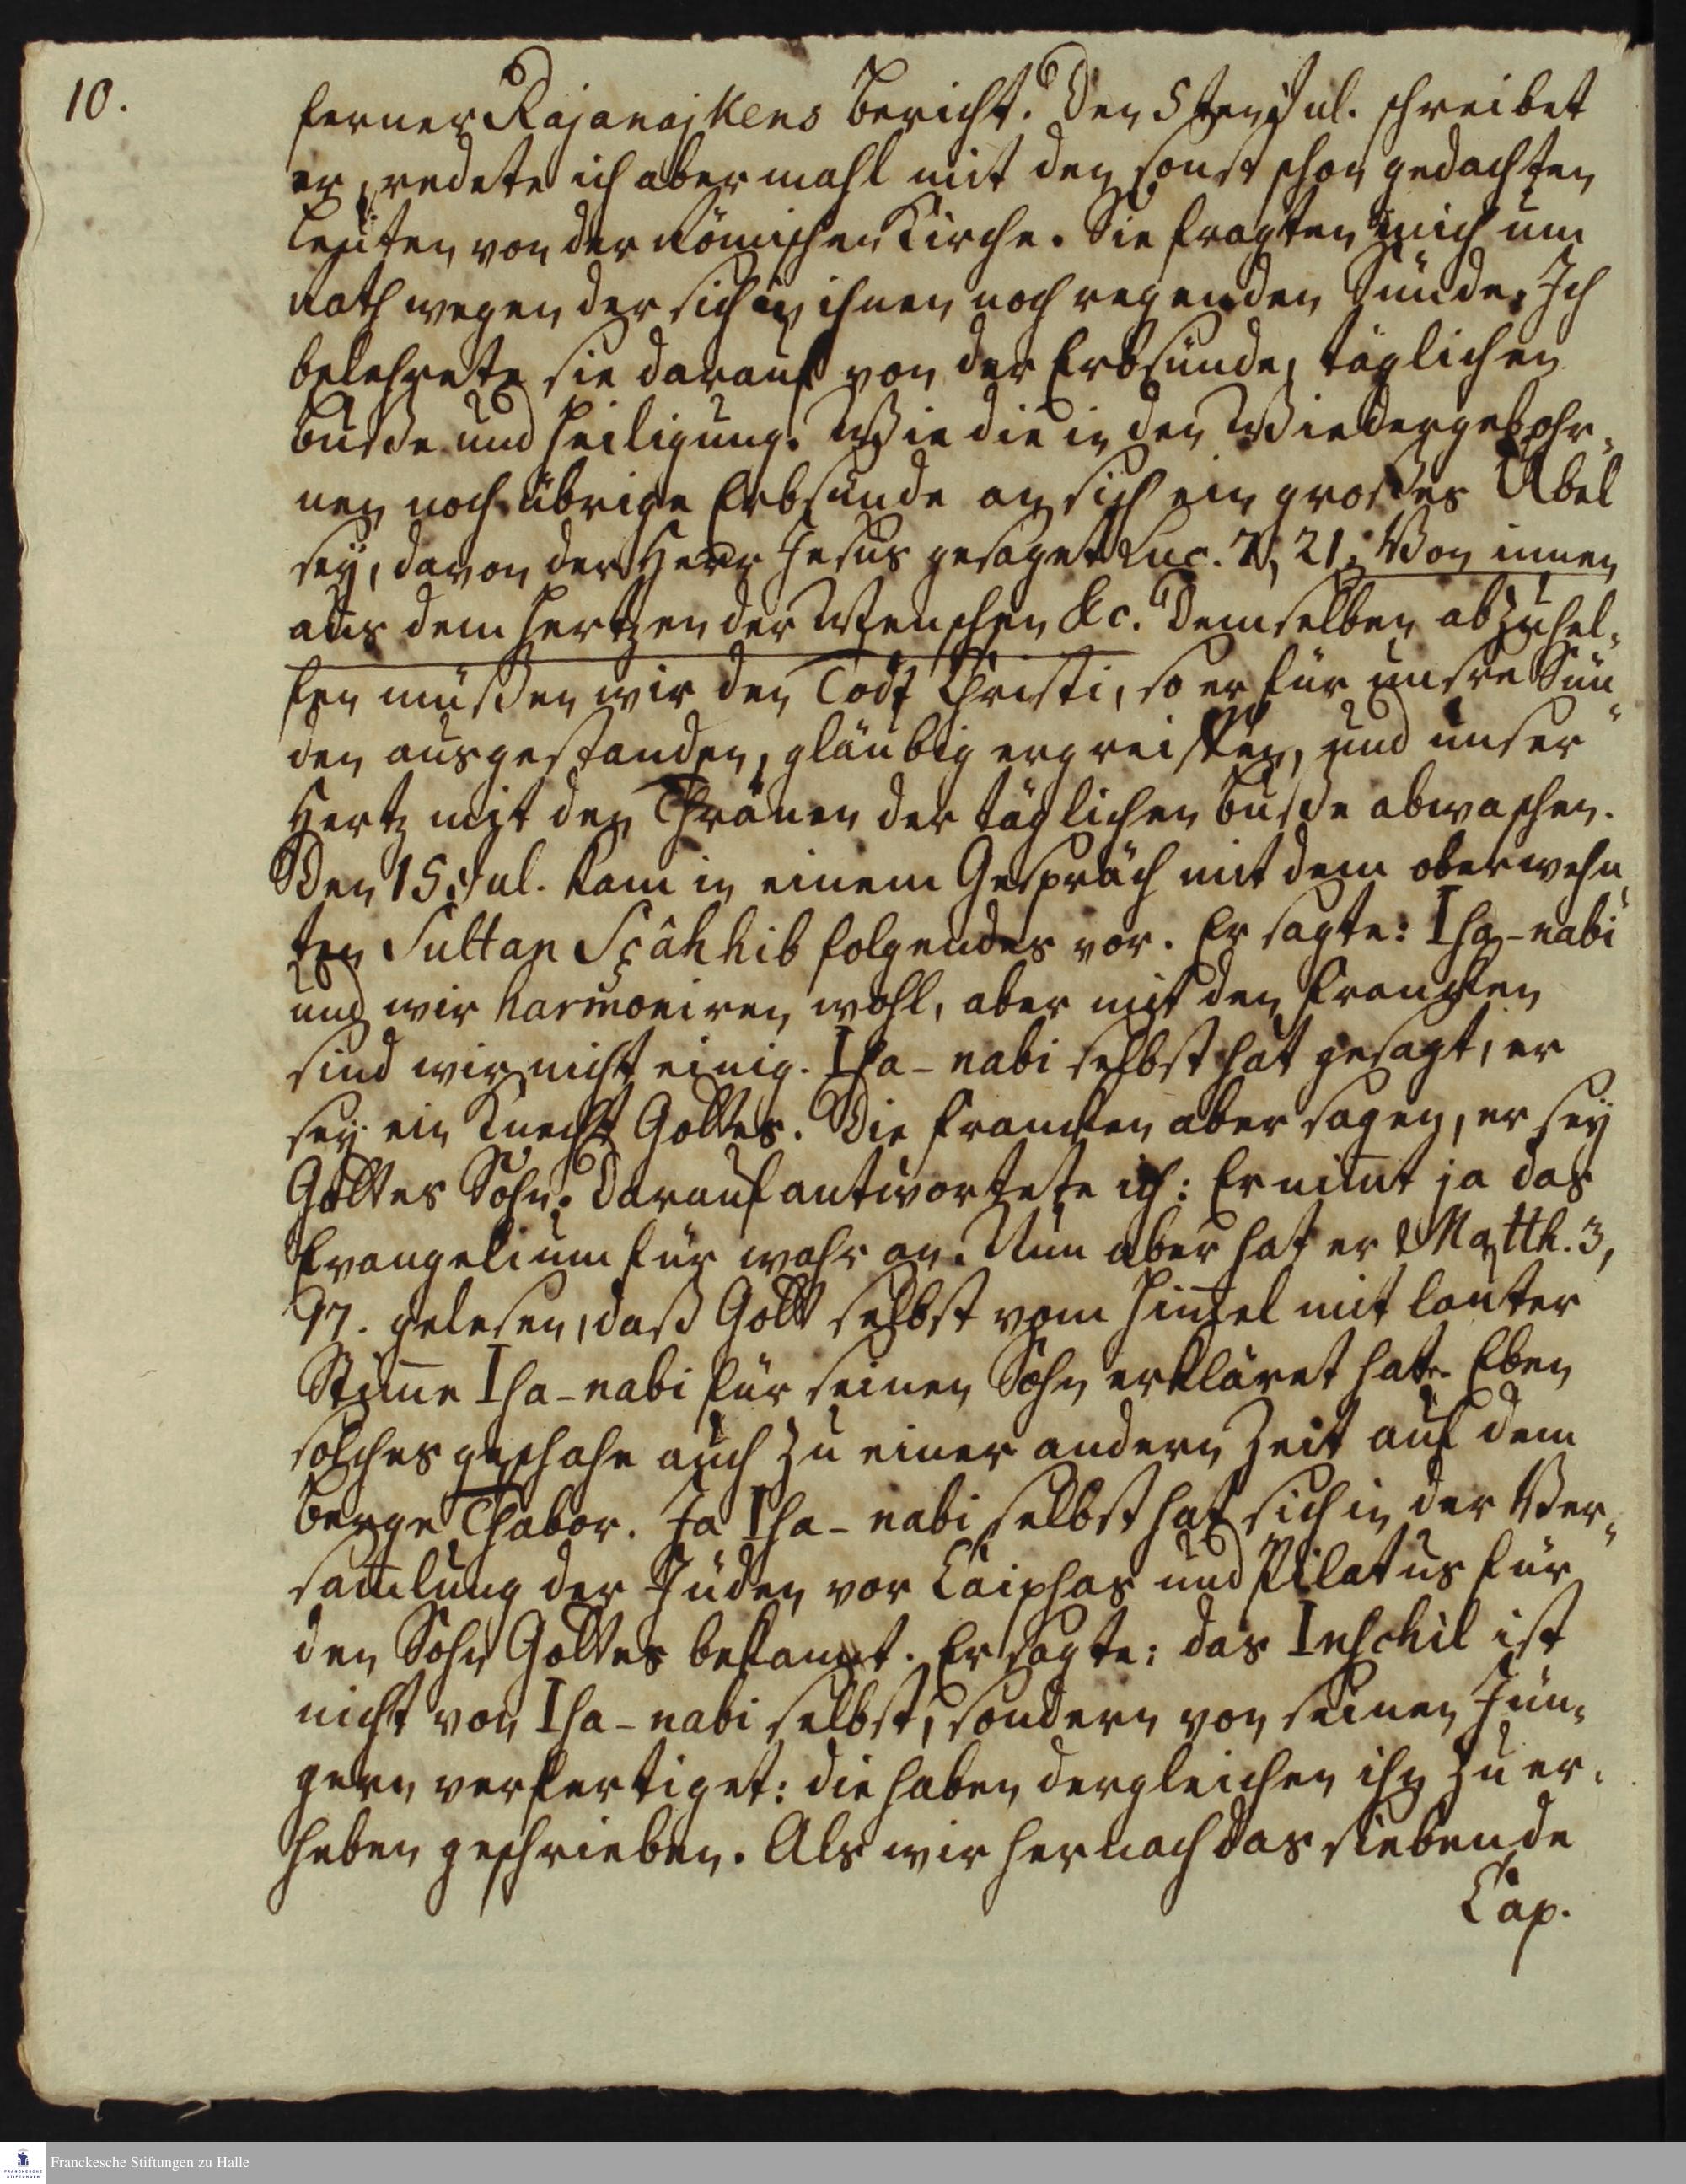 10.
ferner Rajanajkens Bericht. Den 5ten Jul. schreibet
er, redete ich abermahl mit den sonst schon gedachten
Leuten von der Römischen Kirche. Sie fragten mich um
Rath wegen der sich in ihnen noch regenden Sünde. Ich
belehrete sie darauf von der Erbsünde, täglichen
Buße und Heiligung. Wie die in den Wiedergebohr-
nen noch übrige Erbsünde an sich ein großes Übel
sey, davon der Herr Jesus gesaget Luc. 7, 21. Von innen
aus dem Hertzen der Menschen &c. Demselben abzuhel-
fen müßen wir den Todt Christi, so er für unsre Sün-
den ausgestanden, gläubig ergreiffen, und unser
Hertz mit den Thränen der täglichen Buße abwaschen.
Den 15 Jul. kam in einem Gespräch mit dem oberwehn-
ten Sultan Sçâhhib folgendes vor. Er sagte: Isa-nabi
und wir harmoniren wohl, aber mit den Francken
sind wir nicht einig. Isa-nabi selbst hat gesagt, er
sey ein Knecht Gottes. Die Francken aber sagen, er sey
Gottes Sohn. Darauf antwortete ich: Er nim̅t ja das
Evangelium für wahr an. Nun aber hat er Matth. 3,
17. gelesen, daß Gott selbst vom Him̅el mit lauter
Stim̅e Isa-nabi für seinen Sohn erkläret hat. Eben
solches geschahe auch zu einer andern Zeit auf dem
Berge Thabor. Ja Isa-nabi selbst hat sich in der Ver-
sam̅lung der Jüden vor Caiphas und Pilatus für
den Sohn Gottes bekannt. Er sagte: das Inschil ist
nicht von Isa-nabi selbst, sondern von seinen Jün-
gern verfertiget: die haben dergleichen ihn zu er-
heben geschrieben. Als wir hernach das siebende
Cap.
Franckesche Stiftungen zu Halle